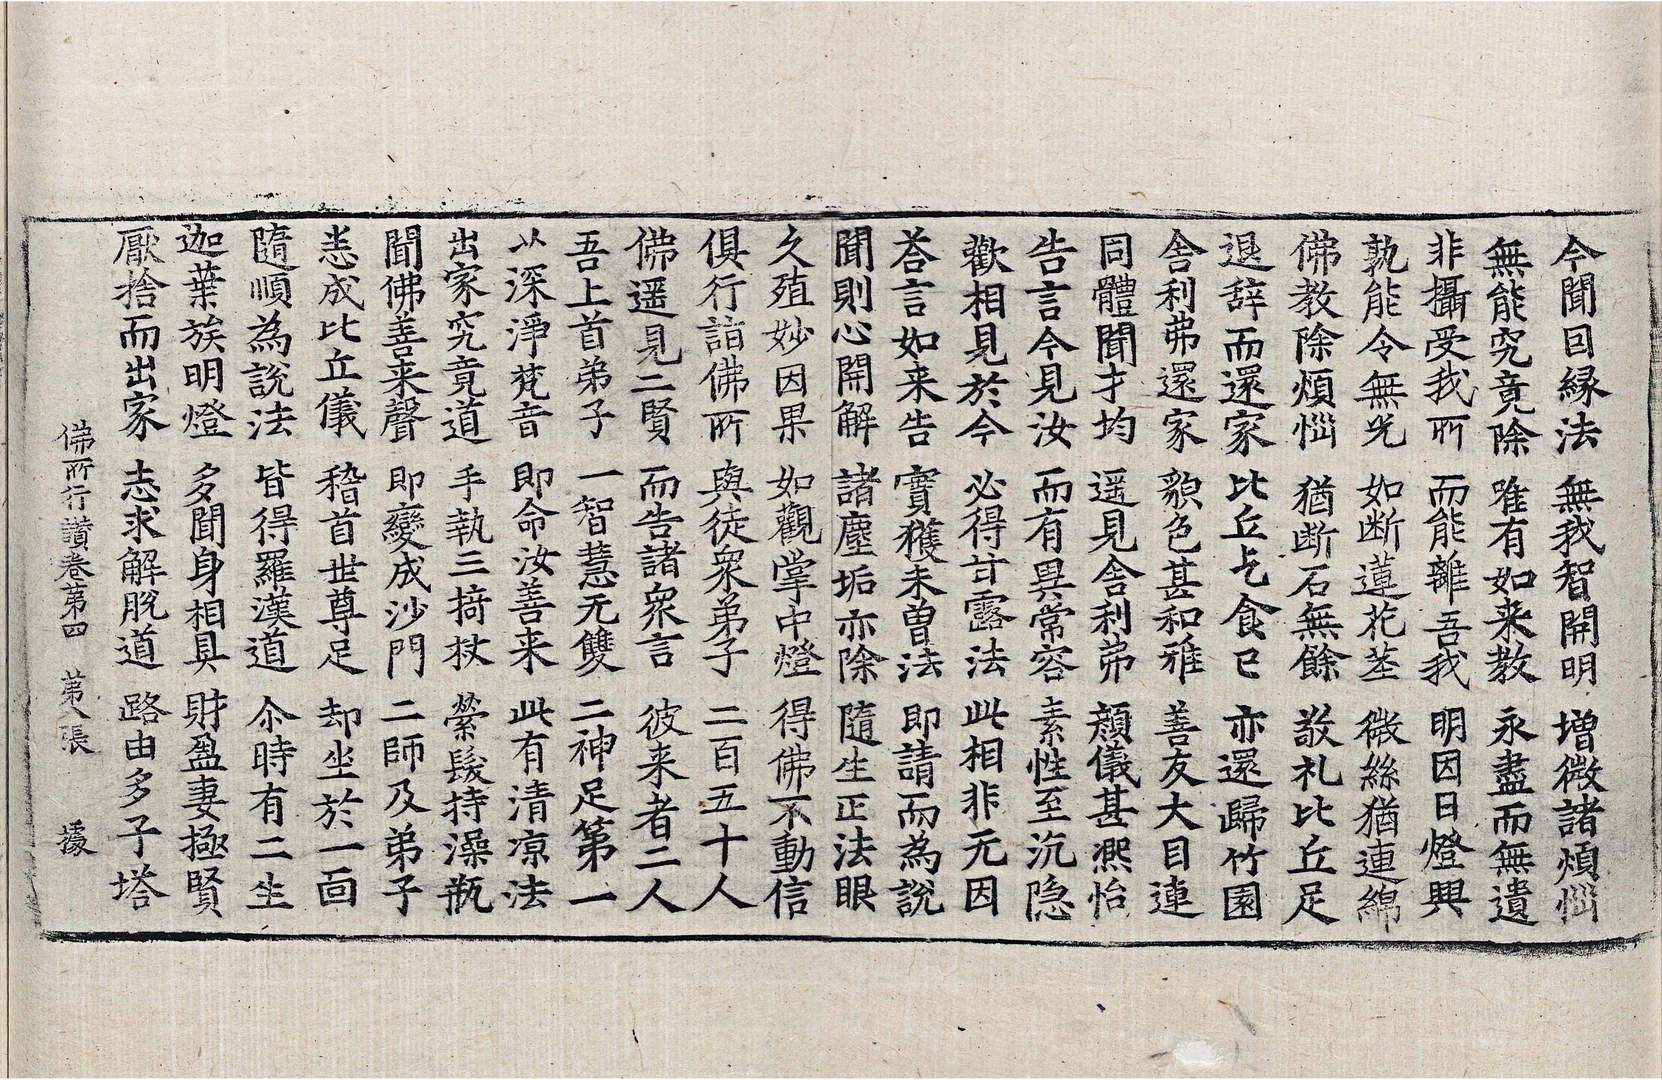 今聞因縁法 無我智開明 增微諸煩惱
無能究竟除 唯有如来教 永盡而無遺
非攝受我所 而能離吾我 明因日燈興
孰能令無光 如断蓮花莖 微絲猶連綿
佛教除煩惱 猶断石無餘 敬礼比丘足
退辞而還家 比丘乞食已 亦還歸竹園
舎利弗還家 貌色甚和雅 善友大目連
同體聞才均 遥見舎利弗 顔儀甚熈怡
告言今見汝 而有異常容 素性至沉隐
歡相見於今 必得甘露法 此相非无因
荅言如来告 實獲未曽法 即請而為説
聞則心開解 諸塵垢亦除 隨生正法眼
久殖妙因果 如觀掌中燈 得佛不動信
俱行詣佛所 與徒衆弟子 二百五十人
佛遥見二賢 而告諸衆言 彼来者二人
吾上首弟子 一智慧无雙 二神足第一
以深淨梵音 即命汝善来 此有清凉法
出家究竟道 手執三掎杖 縈髮持澡瓶
聞佛善来聲 即變成沙門 二師及弟子
悉成比丘儀 稽首世尊足 却坐於一面
隨順為説法 皆得羅漢道 尒時有二生
迦葉族明燈 多聞身相具 財盈妻極賢
厭捨而出家 志求解脱道 路由多子塔
佛所行讃卷第四 第八張 據